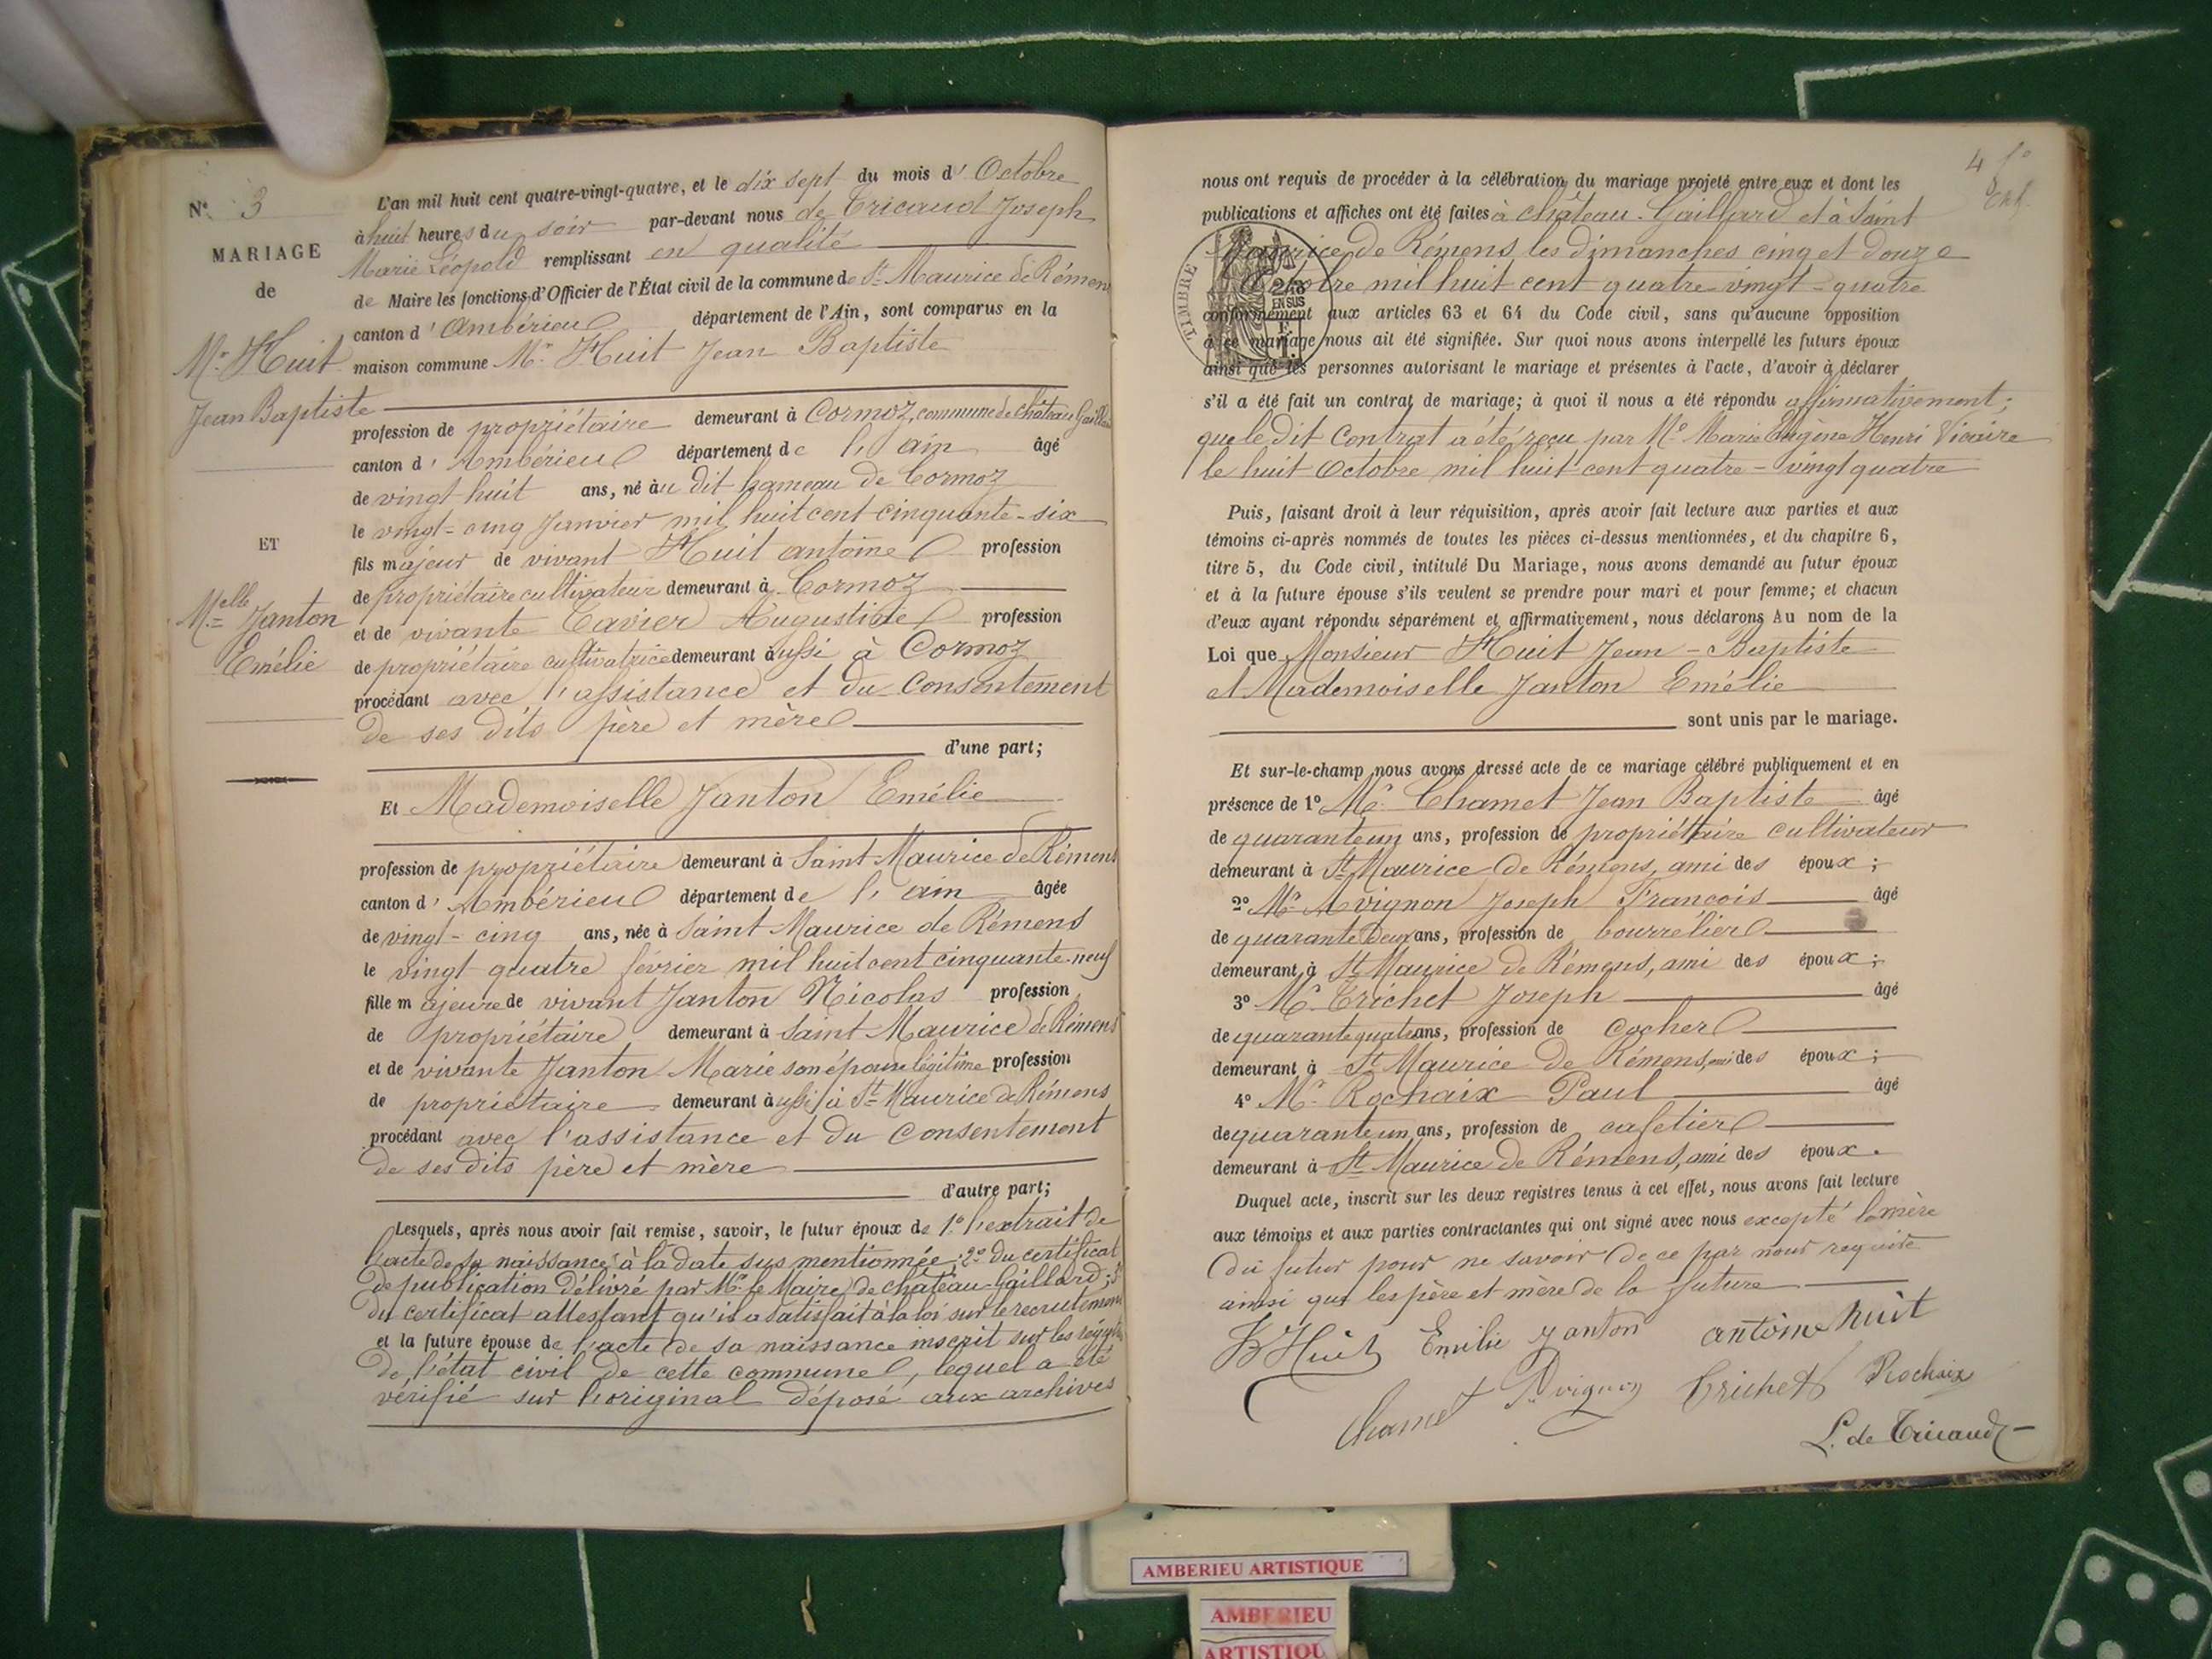 N° 3
MARIAGE
de
Mr Huit
Jean Baptiste
ET
Melle Janton
Emélie
L'an mil huit cent quatre-vingt-quatre, et le dix sept du mois d'Octobre
à huit heures du soir par-devant nous de Tricaud Joseph
Marie Léopold remplissant en qualité
de Maire les fonctions d'Officier de l'État civil de la commune de St Maurice de Rémens
canton d'Ambérieu département de l'Ain, sont comparus en la
maison commune Mr Huit Jean Baptiste
profession de propriétaire demeurant à Cormoz, commune de Château Gaillard
canton d'Ambérieu département de l'ain âgé
de vingt-huit ans, né au dit hameau de Cormoz
le vingt-cinq Janvier mil huit cent cinquante-six
fils majeur de vivant Huit antoine profession
de propriétaire cultivateur demeurant à Cormoz
et de vivante Cavier Augustine profession
de propriétaire cultivatrice demeurant aussi à Cormoz
procédant avec l'assistance et du Consentement
de ses dits père et mère
d'une part;
Et Mademoiselle Janton Emélie
profession de propriétaire demeurant à Saint Maurice de Rémens
canton d'Ambérieu département de l'ain âgée
de vingt-cinq ans, née à Saint Maurice de Rémens
le vingt quatre février mil huit cent cinquante-neuf
fille majeure de vivant Janton Nicolas profession
de propriétaire demeurant à Saint Maurice de Rémens
et de vivante Janton Marie son épouse légitime profession
de propriétaire demeurant aussi à St Maurice de Rémens
procédant avec l'assistance et du Consentement
de ses dits père et mère
d'autre part;
Lesquels, après nous avoir fait remise, savoir, le futur époux de 1° l'extrait de
l'acte de sa naissance à la date sus mentionnée; 2° du certificat
de publication délivré par Mr le Maire de château-Gaillard; 3°
du certificat attestant qu'il a satisfait à la loi sur le recrutement
et la future épouse de l'acte de sa naissance inscrit sur les registres
de l'état civil de cette commune, lequel a été
vérifié sur l'original déposé aux archives
4
nous ont requis de procéder à la célébration du mariage projeté entre eux et dont les
publications et affiches ont été faites à château-Gaillard et à Saint
Maurice de Rémens les dimanches cinq et douze
Octobre mil huit cent quatre vingt-quatre
conformément aux articles 63 et 64 du Code civil, sans qu'aucune opposition
à ce mariage nous ait été signifiée. Sur quoi nous avons interpellé les futurs époux
ainsi que les personnes autorisant le mariage et présentes à l'acte, d'avoir à déclarer
s'il a été fait un contrat de mariage; à quoi il nous a été répondu affirmativement;
que le dit Contrat a été reçu par Me Marie Eugène Henri Vicaire
le huit Octobre mil huit cent quatre-vingt quatre
TIMBRE
2/10
EN SUS
Puis, faisant droit à leur réquisition, après avoir fait lecture aux parties et aux
témoins ci-après nommés de toutes les pièces ci-dessus mentionnées, et du chapitre 6,
titre 5, du Code civil, intitulé Du Mariage, nous avons demandé au futur époux
et à la future épouse s'ils veulent se prendre pour mari et pour femme; et chacun
d'eux ayant répondu séparément et affirmativement, nous déclarons Au nom de la
Loi que Monsieur Huit Jean-Baptiste
et Mademoiselle Janton Emélie
sont unis par le mariage.
Et sur-le-champ nous avons dressé acte de ce mariage célébré publiquement et en
présence de 1° Mr Chamet Jean Baptiste âgé
de quarante un ans, profession de propriétaire cultivateur
demeurant à St Maurice de Rémens, ami des époux;
2° Mr Avignon Joseph François âgé
de quarante deux ans, profession de bourrelier
demeurant à St Maurice de Rémens, ami des époux;
3° Mr Trichet Joseph âgé
de quarante quatre ans, profession de Cocher
demeurant à St Maurice de Rémens, ami des époux;
4° Mr Rochaix Paul âgé
de quarante un ans, profession de cafetier
demeurant à St Maurice de Rémens, ami des époux.
Duquel acte, inscrit sur les deux registres tenus à cet effet, nous avons fait lecture
aux témoins et aux parties contractantes qui ont signé avec nous excepté la mère
du futur pour ne savoir de ce par nous requise
ainsi que les père et mère de la future
JB Huit Emilie Janton antoine huit
Chamet Avignon Trichet Rochaix
L. de Tricaud
AMBERIEU ARTISTIQUE
AMBERIEU
ARTISTIQU